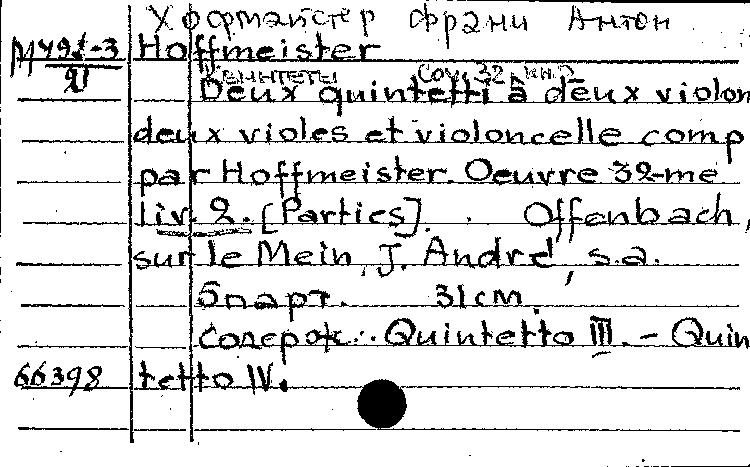 Хофмайстер Франц Антон
М 491-3 Hoffmeister
21
Квинтеты Соч. 32, кн. 2
Deux quintetti à deux violon
deux violes et violoncelle comp
par Hoffmeister. Oeuvre 32-me
liv. 2. [Parties]. Offenbach,
sur le Mein, J. André, s.a.
5 парт. 31 см.
Содерж.: Quintetto III. - Quin
66398 tetto IV.